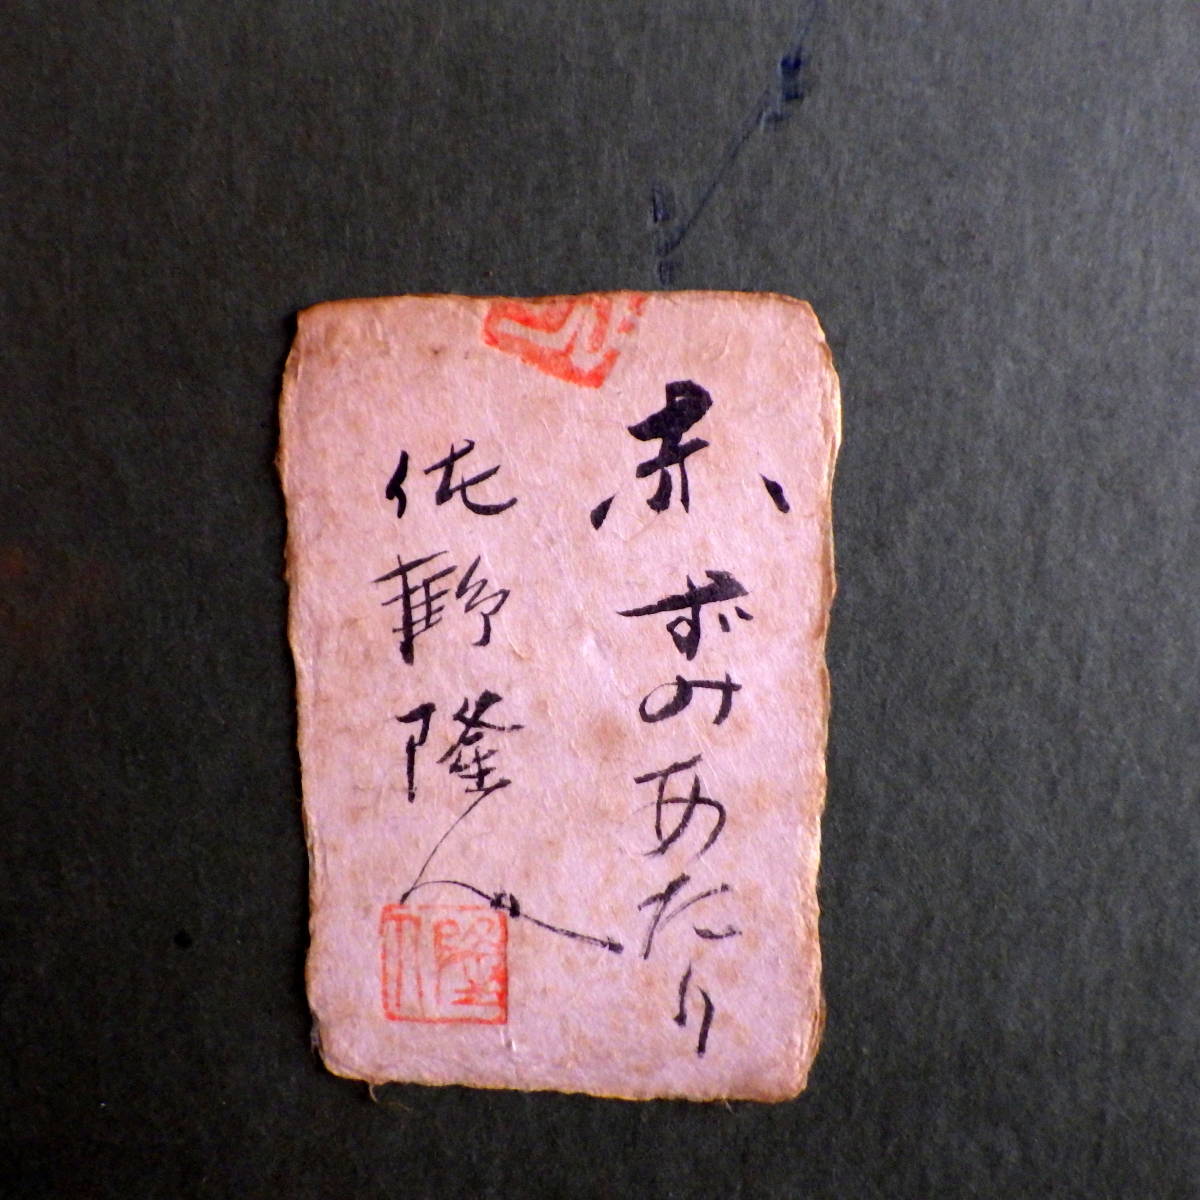 赤ずみあたり
佐野隆